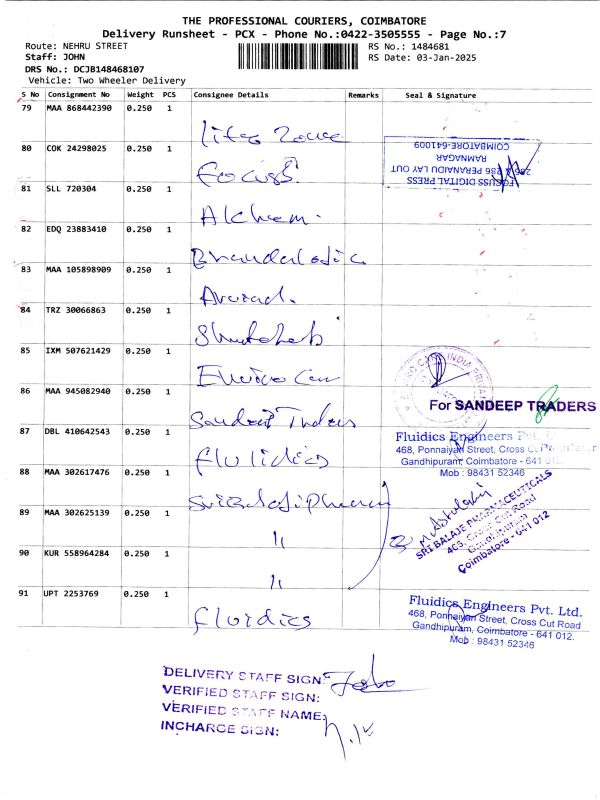 THE PROFESSIONAL COURIERS, COIMBATORE
Delivery Runsheet - PCX - Phone No.:0422-3505555 - Page No.:7
Route: NEHRU STREET RS No.: 1484681
Staff: JOHN RS Date: 03-Jan-2025
DRS No.: DCJB148468107
Vehicle: Two Wheeler Delivery
S No Consignment No Weight PCS Consignee Details Remarks Seal & Signature
79 MAA 868442390 0.250 1
80 COK 24298025 0.250 1 Focuss
FOCUSS DIGITAL PRESS
286 PERANAIDU LAY OUT
RAMNAGAR
COIMBATORE-641009
81 SLL 720304 0.250 1 Alchem.
82 EDQ 23883410 0.250 1
83 MAA 105898909 0.250 1
84 TRZ 30066863 0.250 1
85 IXM 507621429 0.250 1
86 MAA 945082940 0.250 1 Sandeep Traders
For SANDEEP TRADERS
87 DBL 410642543 0.250 1 Fluidics
Fluidics Engineers Pvt. Ltd.
468, Ponnaiyan Street, Cross Cut
Gandhipuram, Coimbatore - 641 012.
Mob : 98431 52346
88 MAA 302617476 0.250 1
SRI BALAJE PHARMACEUTICALS
Cross Cut Road
Gandhipuram
Coimbatore - 641 012
89 MAA 302625139 0.250 1 11
90 KUR 558964284 0.250 1 11
91 UPT 2253769 0.250 1 Fluidics
Fluidics Engineers Pvt. Ltd.
468, Ponnaiyan Street, Cross Cut Road
Gandhipuram, Coimbatore - 641 012.
Mob : 98431 52346
DELIVERY STAFF SIGN: John
VERIFIED STAFF SIGN:
VERIFIED STAFF NAME:
INCHARGE SIGN: